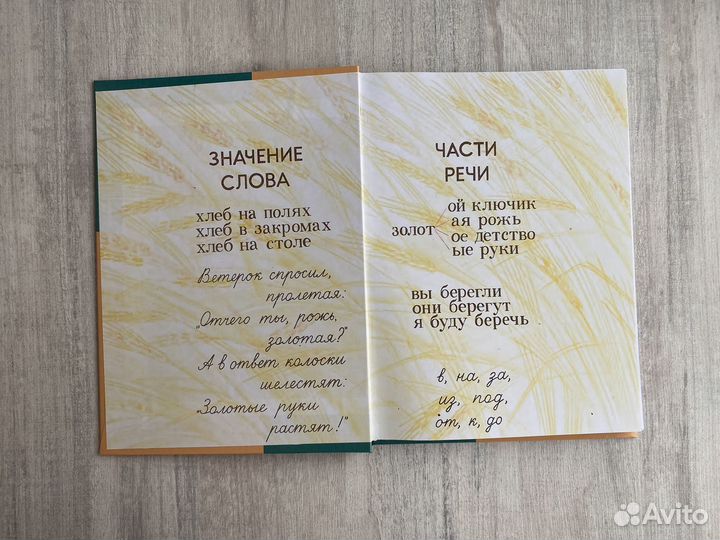 ЗНАЧЕНИЕ
СЛОВА
хлеб на полях
хлеб в закромах
хлеб на столе
Ветерок спросил,
пролетая:
„Отчего ты, рожь,
золотая?"
А в ответ колоски
шелестят:
„Золотые руки
растят!"
ЧАСТИ
РЕЧИ
ой ключик
ая рожь
золот
ое детство
ые руки
вы берегли
они берегут
я буду беречь
в, на, за,
из, под,
от, к, до
Avito